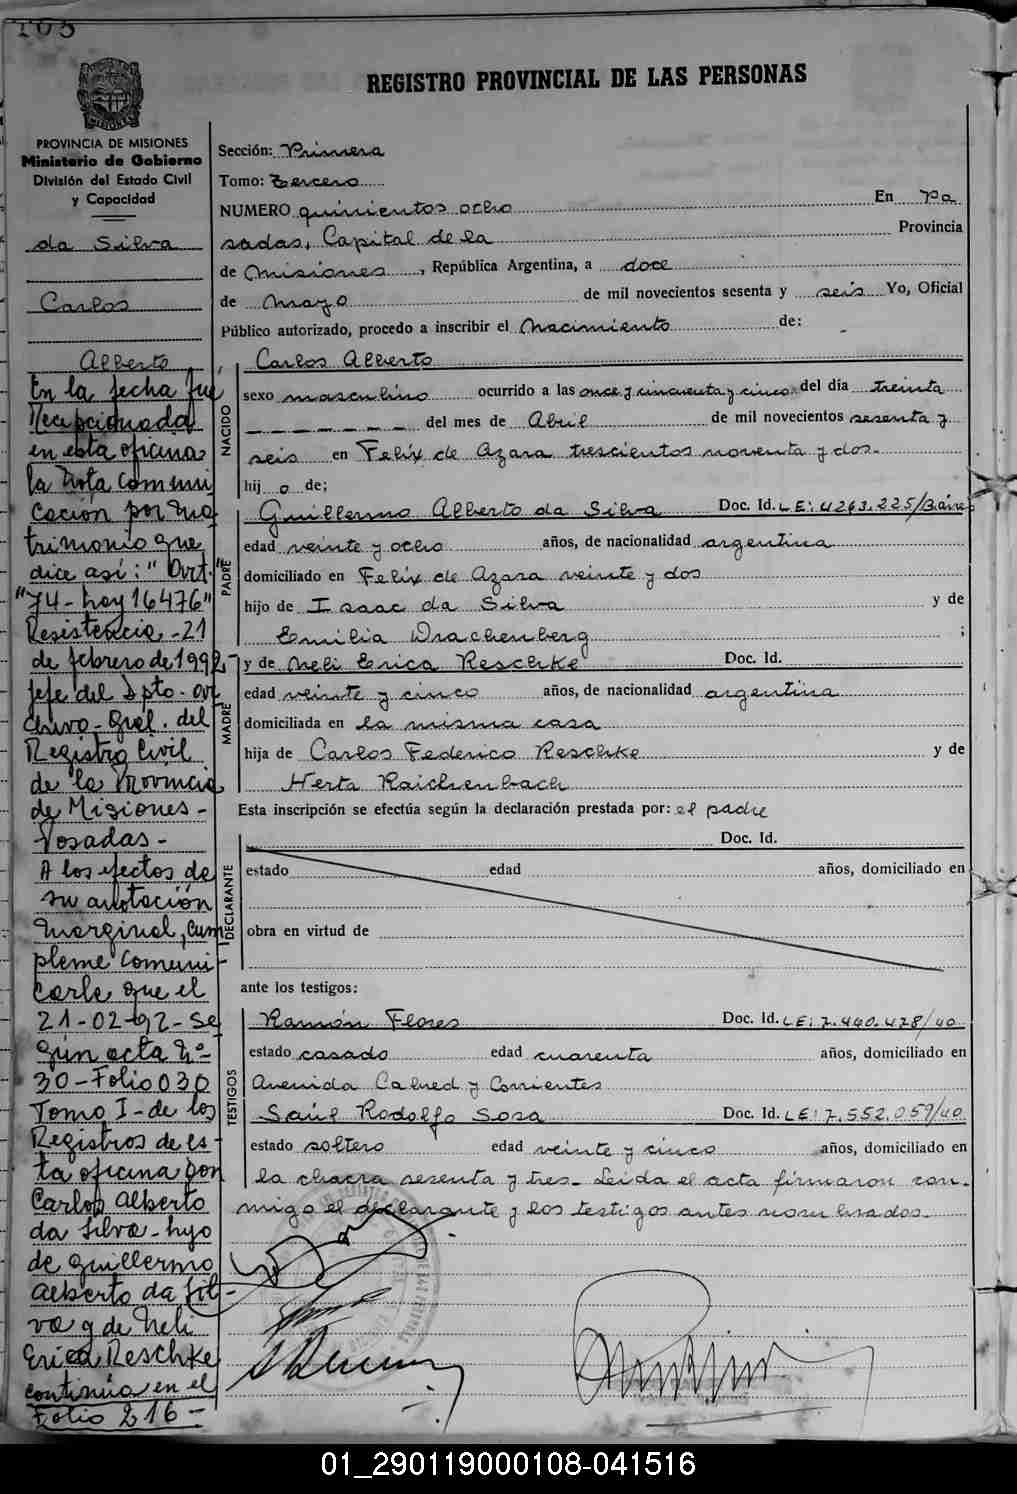 105
REGISTRO PROVINCIAL DE LAS PERSONAS
MISIONES
PROVINCIA DE MISIONES
Ministerio de Gobierno
División del Estado Civil
y Capacidad
da Silva
Carlos
Alberto
En la fecha fue
Recepcionada
en esta oficina
la Nota comuni
cación por Ma
trimonio que
dice así: " Art.
"74 - Ley 16476"
Resistencia - 21
de febrero de 1992.-
Jefe del Dpto - Ar
chivo - Gral. del
Registro Civil
de la Provincia
de Misiones -
Posadas -
A los efectos de
su anotación
Marginal, cum
pleme comuni-
carle que el
21-02-92 - Se
gún acta Nº
30 - Folio 030
Tomo I - de los
Registros de es-
ta oficina por
Carlos Alberto
da Silva - hijo
de Guillermo
Alberto da Sil-
va y de Neli
Erica Reschke
continúa en el
Folio 216 -
Sección: Primera
Tomo: Tercero
NUMERO quinientos ocho En Po
sadas, Capital de la Provincia
de Misiones, República Argentina, a doce
de mayo de mil novecientos sesenta y seis Yo, Oficial
Público autorizado, procedo a inscribir el Nacimiento de:
NACIDO
Carlos Alberto
sexo masculino ocurrido a las once y cincuenta y cinco del día treinta
del mes de Abril de mil novecientos sesenta y
seis en Felix de Azara trescientos noventa y dos.
hijo de;
PADRE
Guillermo Alberto da Silva Doc. Id. LE: 4263.225/B.aires
edad veinte y ocho años, de nacionalidad argentina
domiciliado en Felix de Azara veinte y dos
hijo de Isaac da Silva y de
Emilia Drachenberg ;
MADRE
y de Neli Erica Reschke Doc. Id.
edad veinte y cinco años, de nacionalidad argentina
domiciliada en la misma casa
hija de Carlos Federico Reschke y de
Herta Raichenbach
Esta inscripción se efectúa según la declaración prestada por: el padre
DECLARANTE
Doc. Id.
estado edad años, domiciliado en
obra en virtud de
ante los testigos:
TESTIGOS
Ramón Flores Doc. Id. LE: 7.440.478/40
estado casado edad cuarenta años, domiciliado en
Avenida Cabred y Corrientes
Saúl Rodolfo Sosa Doc. Id. LE: 7.552.059/40
estado soltero edad veinte y cinco años, domiciliado en
la chacra sesenta y tres. Leida el acta firmaron con-
migo el declarante y los testigos antes nombrados.
01_290119000108-041516